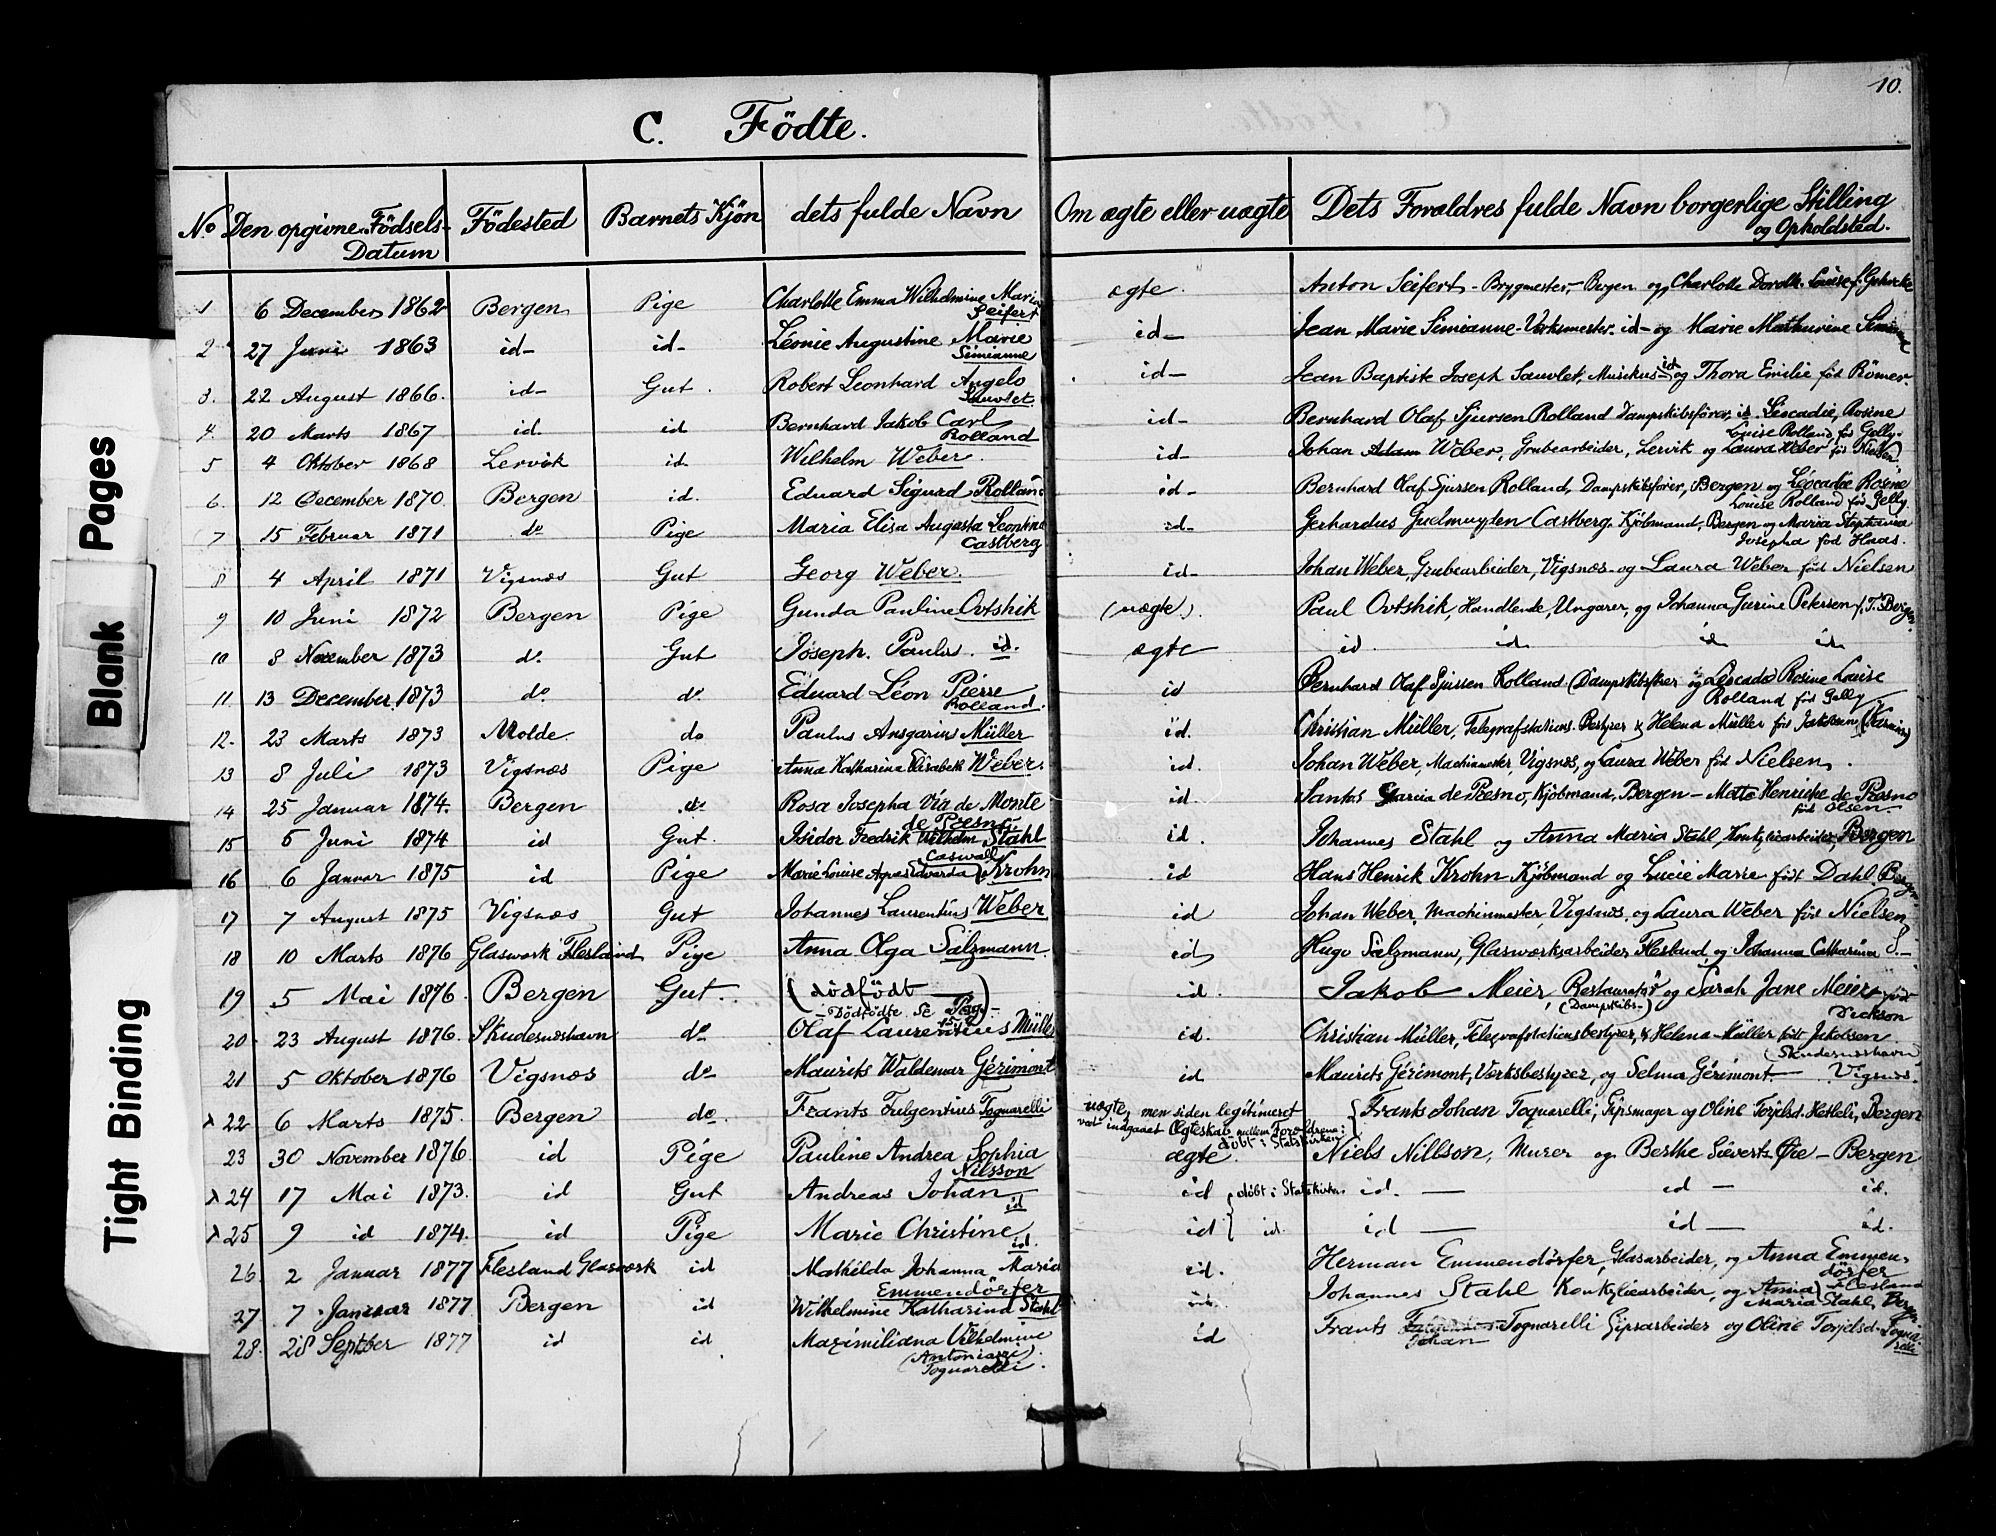 10.
C. Födte.
No Den opgivne Födsels-Datum Födested Barnets Kjön dets fulde Navn Om ægte eller uægte Dets Forældres fulde Navn borgerlige Stilling og Opholdsted.
1 6 December 1862 Bergen Pige Charlotte Emma Wilhelmine Maria Seifert ægte. Anton Seifert - Brygmester, Bergen og Charlotte Doroth. Louise f. Gehrcke
2 27 Juni 1863 id- id- Léonie Augustine Marie Simianne id- Jean Marie Simianne - Værksmester - id - og Marie Mathurine Simianne
3. 22 August 1866. id- Gut. Robert Leonhard Angelo Sauvlet. id- Jean Baptiste Joseph Sauvlet, Musikus - id - og Thora Emilie föd Römer.
4. 20 Marts 1867 id. id Bernhard Jakob Carl Rolland id- Bernhard Olaf Sjursen Rolland Dampskibsförer, id. Léocadie, Rosine Louise Rolland, föd Gelly.
5 4 Oktober 1868 Lervik id. Wilhelm Weber. id- Johan Adam Weber, Grubearbeider, Lervik og Laura Weber föd Nielsen
6. 12 December 1870. Bergen id. Eduard Sigurd Rolland id- Bernhard Olaf Sjursen Rolland, Dampskibsförer, Bergen og Léocadie Rosine Louise Rolland föd Gelly.
7 15 Februar 1871 do Pige Maria Elisa Augusta Leontina Castberg id- Gerhardus Guelmuyden Castberg. Kjöbmand, Bergen og Maria Stephania Josepha föd Haas.
8 4 April 1871 Vigsnæs Gut Georg Weber. id- Johan Weber, Grubearbeider, Vigsnæs og Laura Weber föd Nielsen
9 10 Juni 1872 Bergen Pige Gunda Pauline Ovtshik (uægte). Paul Ovtshik, Handlende, Ungarer, og Johanna Gurine Petersen f. T. Bergen
10 8 November 1873 do. Gut Joseph. Paulus. id. ægte id. id id id
11 13 December 1873 do do. Eduard Léon Pierre Rolland. id Bernhard Olaf Sjursen Rolland (Dampskibsförer og Léocadie Rosine Louise Rolland föd Gelly
12. 23 Marts 1873 Molde. do Paulus Ansgarius Müller id. Christian Müller, Telegrafstations Bestyrer & Helena Müller föd Jakobsen
13 8 Juli 1873 Vigsnæs Pige Anna Katharina Elisabeth Weber. id. Johan Weber, Machinmester, Vigsnæs, og Laura Weber föd Nielsen.
14 25 Januar 1874. Bergen do Rosa Josepha Via de Monte de Presno id. Santos Garcia de Presno, Kjöbmand, Bergen - Mette Henricke de Presno föd Olsen
15 5 Juni 1874 id Gut. Isidor Fredrik Wilhelm Stahl id. Johannes Stahl og Anna Maria Stahl, Konkyliearbeider, Bergen
16 6 Januar 1875 id Pige Marie Louise Agnes Edvarda (Caswall) Krohn id Hans Henrik Krohn Kjöbmand og Lucie Marie födt Dahl. Bergen
17 7 August 1875 Vigsnæs Gut Johannes Laurentius Weber id Johan Weber, Machinmester, Vigsnæs, og Laura Weber föd Nielsen
18 10 Marts 1876 Glasværk Flesland Pige Anna Olga Salzmann. id Hugo Salzmann, Glasværksarbeider Flesland og Johanna Catharina S.-
19 5 Mai 1876. Bergen Gut. (dödfödt - Dödfödte. Se Pag. id. Jakob Meier, Restauratör (Dampskibs-) og Sarah Jane Meier föd Dickson
20. 23 August 1876. Skudesnæshavn do Olaf Laurentius Müller id. Christian Müller, Telegrafstationsbestyrer, & Helena Müller födt Jakobsen (Skudesnæshavn)
21 5 Oktober 1876 Vigsnæs do Maurits Waldemar Gérimont id Maurits Gérimont, Værksbestyrer, og Selma Gérimont. Vigsnæs.
x 22 6 Marts 1875. Bergen do. Frants Fulgentius Tognarelli uægte, men siden legitimeret ved indgaaet Ægteskab mellem Forældrene: döbt i Statskirken { Frants Johan Tognarelli, Gipsmager og Oline Torjelsd. Hetleli, Bergen
23 30 November 1876. id Pige Pauline Andrea Sophia Nilsson ægte. Niels Nillson, Murer og Berthe Sieverts. Öie - Bergen
x 24 17 Mai 1873. id Gut Andreas Johan id id { döbt i Statskirken id. - id - id.
x 25 9 id 1874. id Pige Marie Christine id. id { id. id - id - id.
26. 2 Januar 1877 Flesland Glasværk id Mathilda Johanna Maria Emmendörfer id. Herman Emmendörfer, Glasarbeider, og Anna Emmendörfer Flesland
27 7 Januar 1877 Bergen id Wilhelmine Katharina Stahl id. Johannes Stahl Konkyliearbeider, og Anna Maria Stahl, Bergen
28. 28 Septber 1877 id id Maximiliana Vilhelmine (Antoniazzi). Tognarelli. id Frants Johan Tognarelli Gipsarbeider og Oline Torjelsd. Tognarelli
Blank Pages
Tight Binding